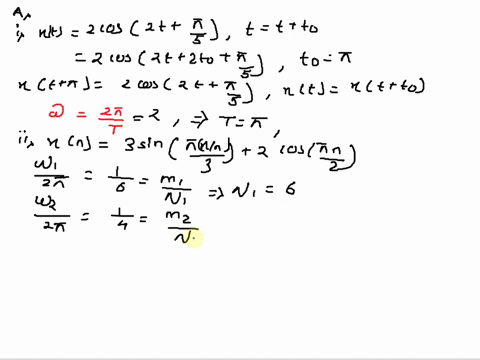 A,
i, x(t) = 2 cos(2t + π/5), t = t + t0
= 2 cos(2t + 2t0 + π/5), t0 = π
x(t+π) = 2 cos(2t + π/5), x(t) = x(t+t0)
ω = 2π/T = 2, ⇒ T = π,
ii, x(n) = 3 sin(π(n)/3) + 2 cos(πn/2)
ω1/2π = 1/6 = m1/N1 ⇒ N1 = 6
ω2/2π = 1/4 = m2/N